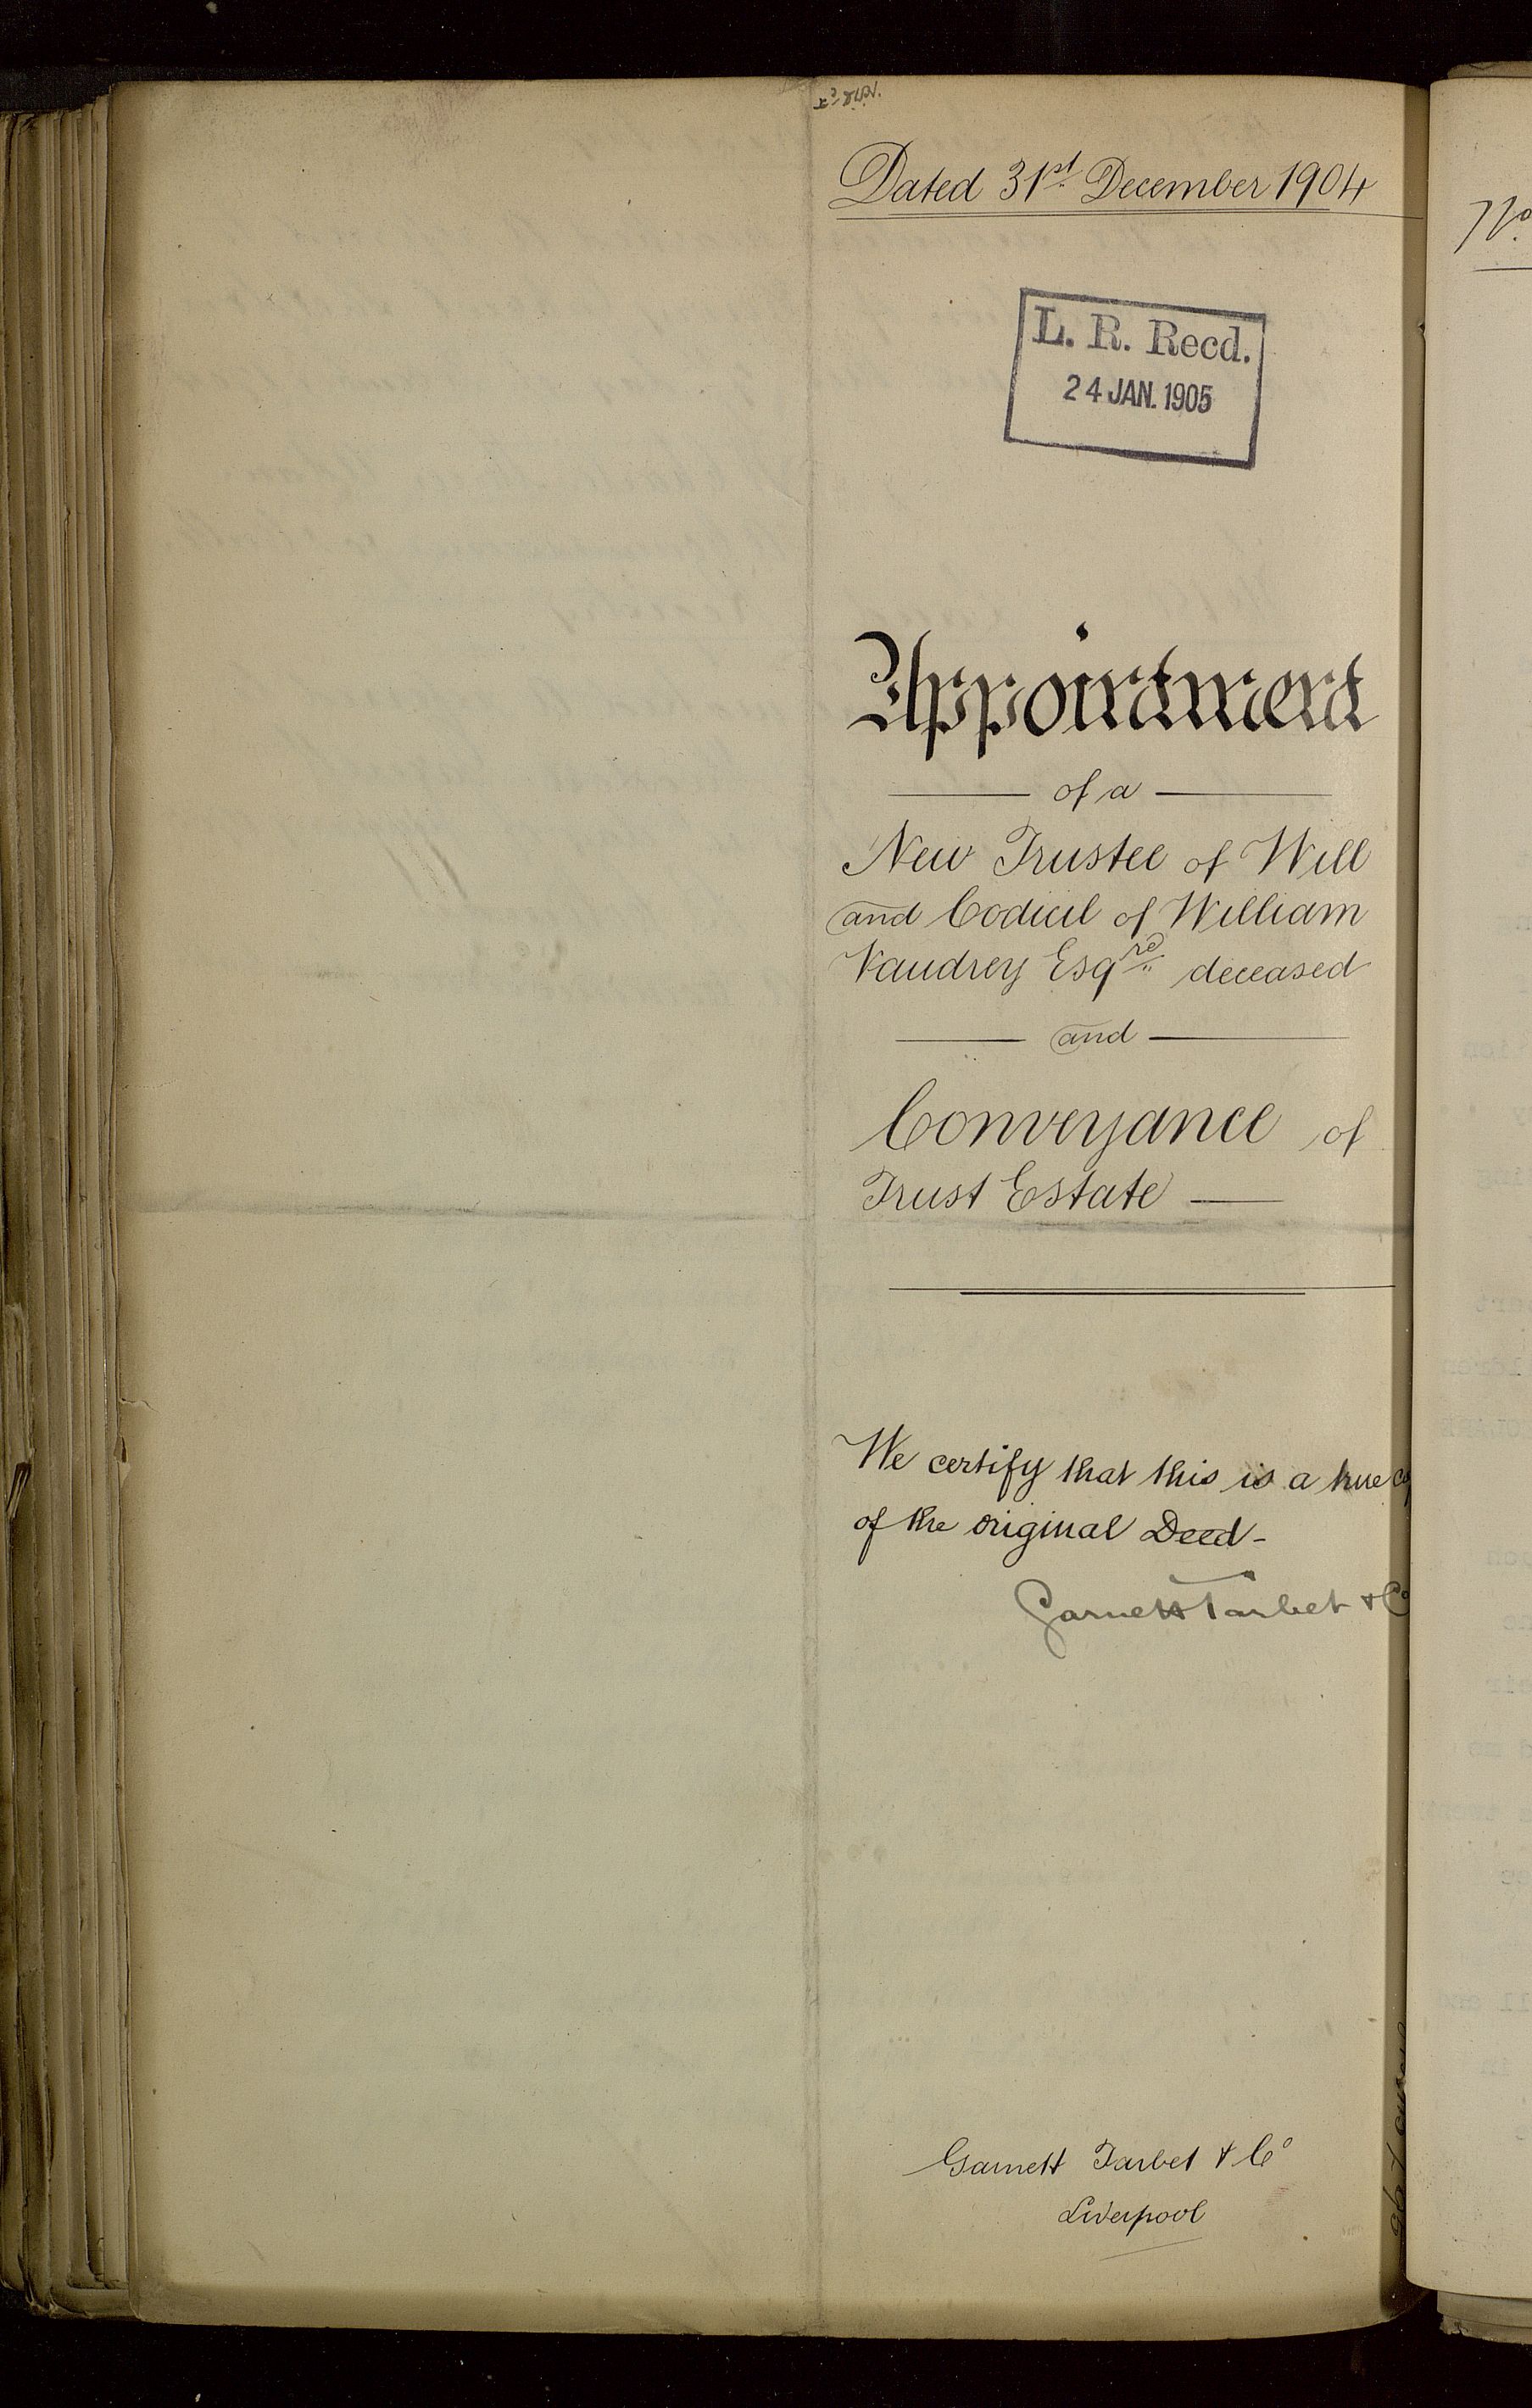 Dated 31st December 1904
L. R. Recd.
24 JAN. 1905
Appointment
of a
New Trustee of Will
and Codicil of William
Vaudrey Esqre deceased
and
Conveyance of
Trust Estate
We certify that this is a true
of the original Deed-
Garnett Tarbet & Co
Garnett Tarbet & Co
Liverpool
No.